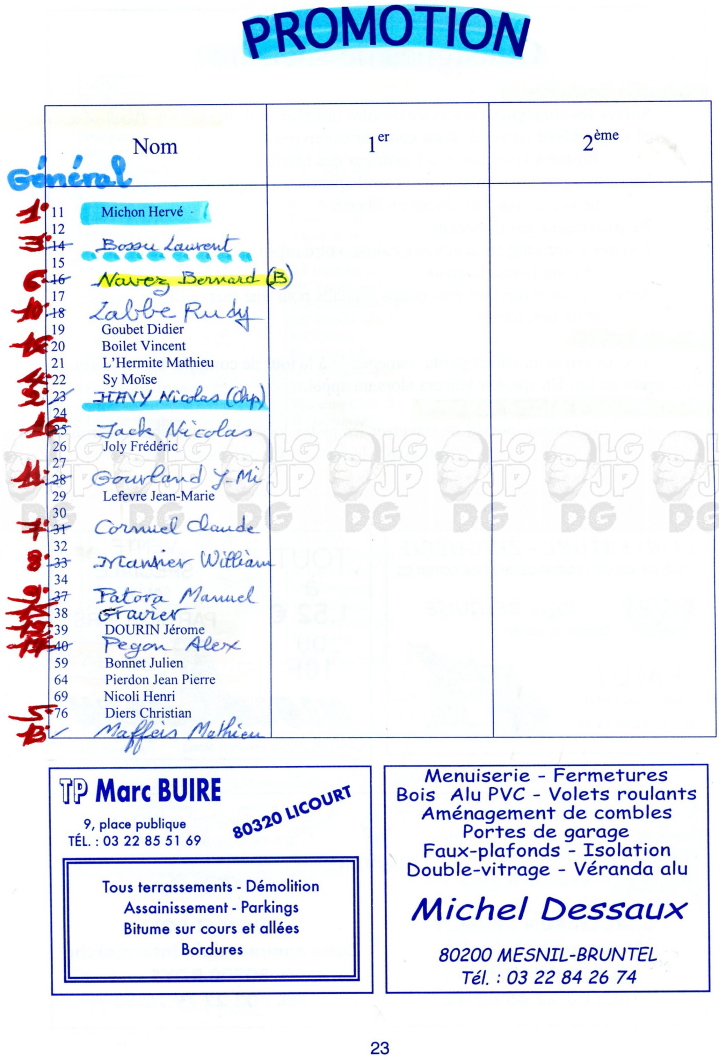 PROMOTION
Nom 1er 2ème
Général
1° 11 Michon Hervé
12
3° 14 Bossu Laurent
15
6° 16 Navez Bernard (B)
17
10° 18 Labbe Rudy
19 Goubet Didier
20 Boilet Vincent
21 L'Hermite Mathieu
4° 22 Sy Moïse
2° 23 HAVY Nicolas (Chp)
24
25 Jack Nicolas
26 Joly Frédéric
27
11° 28 Gourland J-Mi
29 Lefevre Jean-Marie
30
7° 31 Cornuel Claude
32
8° 33 William
34
9° 37 Patora Manuel
38 Gravier
39 DOURIN Jérome
40 Pegon Alex
59 Bonnet Julien
64 Pierdon Jean Pierre
69 Nicoli Henri
5° 76 Diers Christian
13° Maffeis Mathieu
LG
JP
DG
LG
JP
DG
LG
JP
DG
LG
JP
DG
LG
JP
DG
LG
JP
DG
TP Marc BUIRE
9, place publique
TÉL. : 03 22 85 51 69
80320 LICOURT
Tous terrassements - Démolition
Assainissement - Parkings
Bitume sur cours et allées
Bordures
Menuiserie - Fermetures
Bois Alu PVC - Volets roulants
Aménagement de combles
Portes de garage
Faux-plafonds - Isolation
Double-vitrage - Véranda alu
Michel Dessaux
80200 MESNIL-BRUNTEL
Tél. : 03 22 84 26 74
23